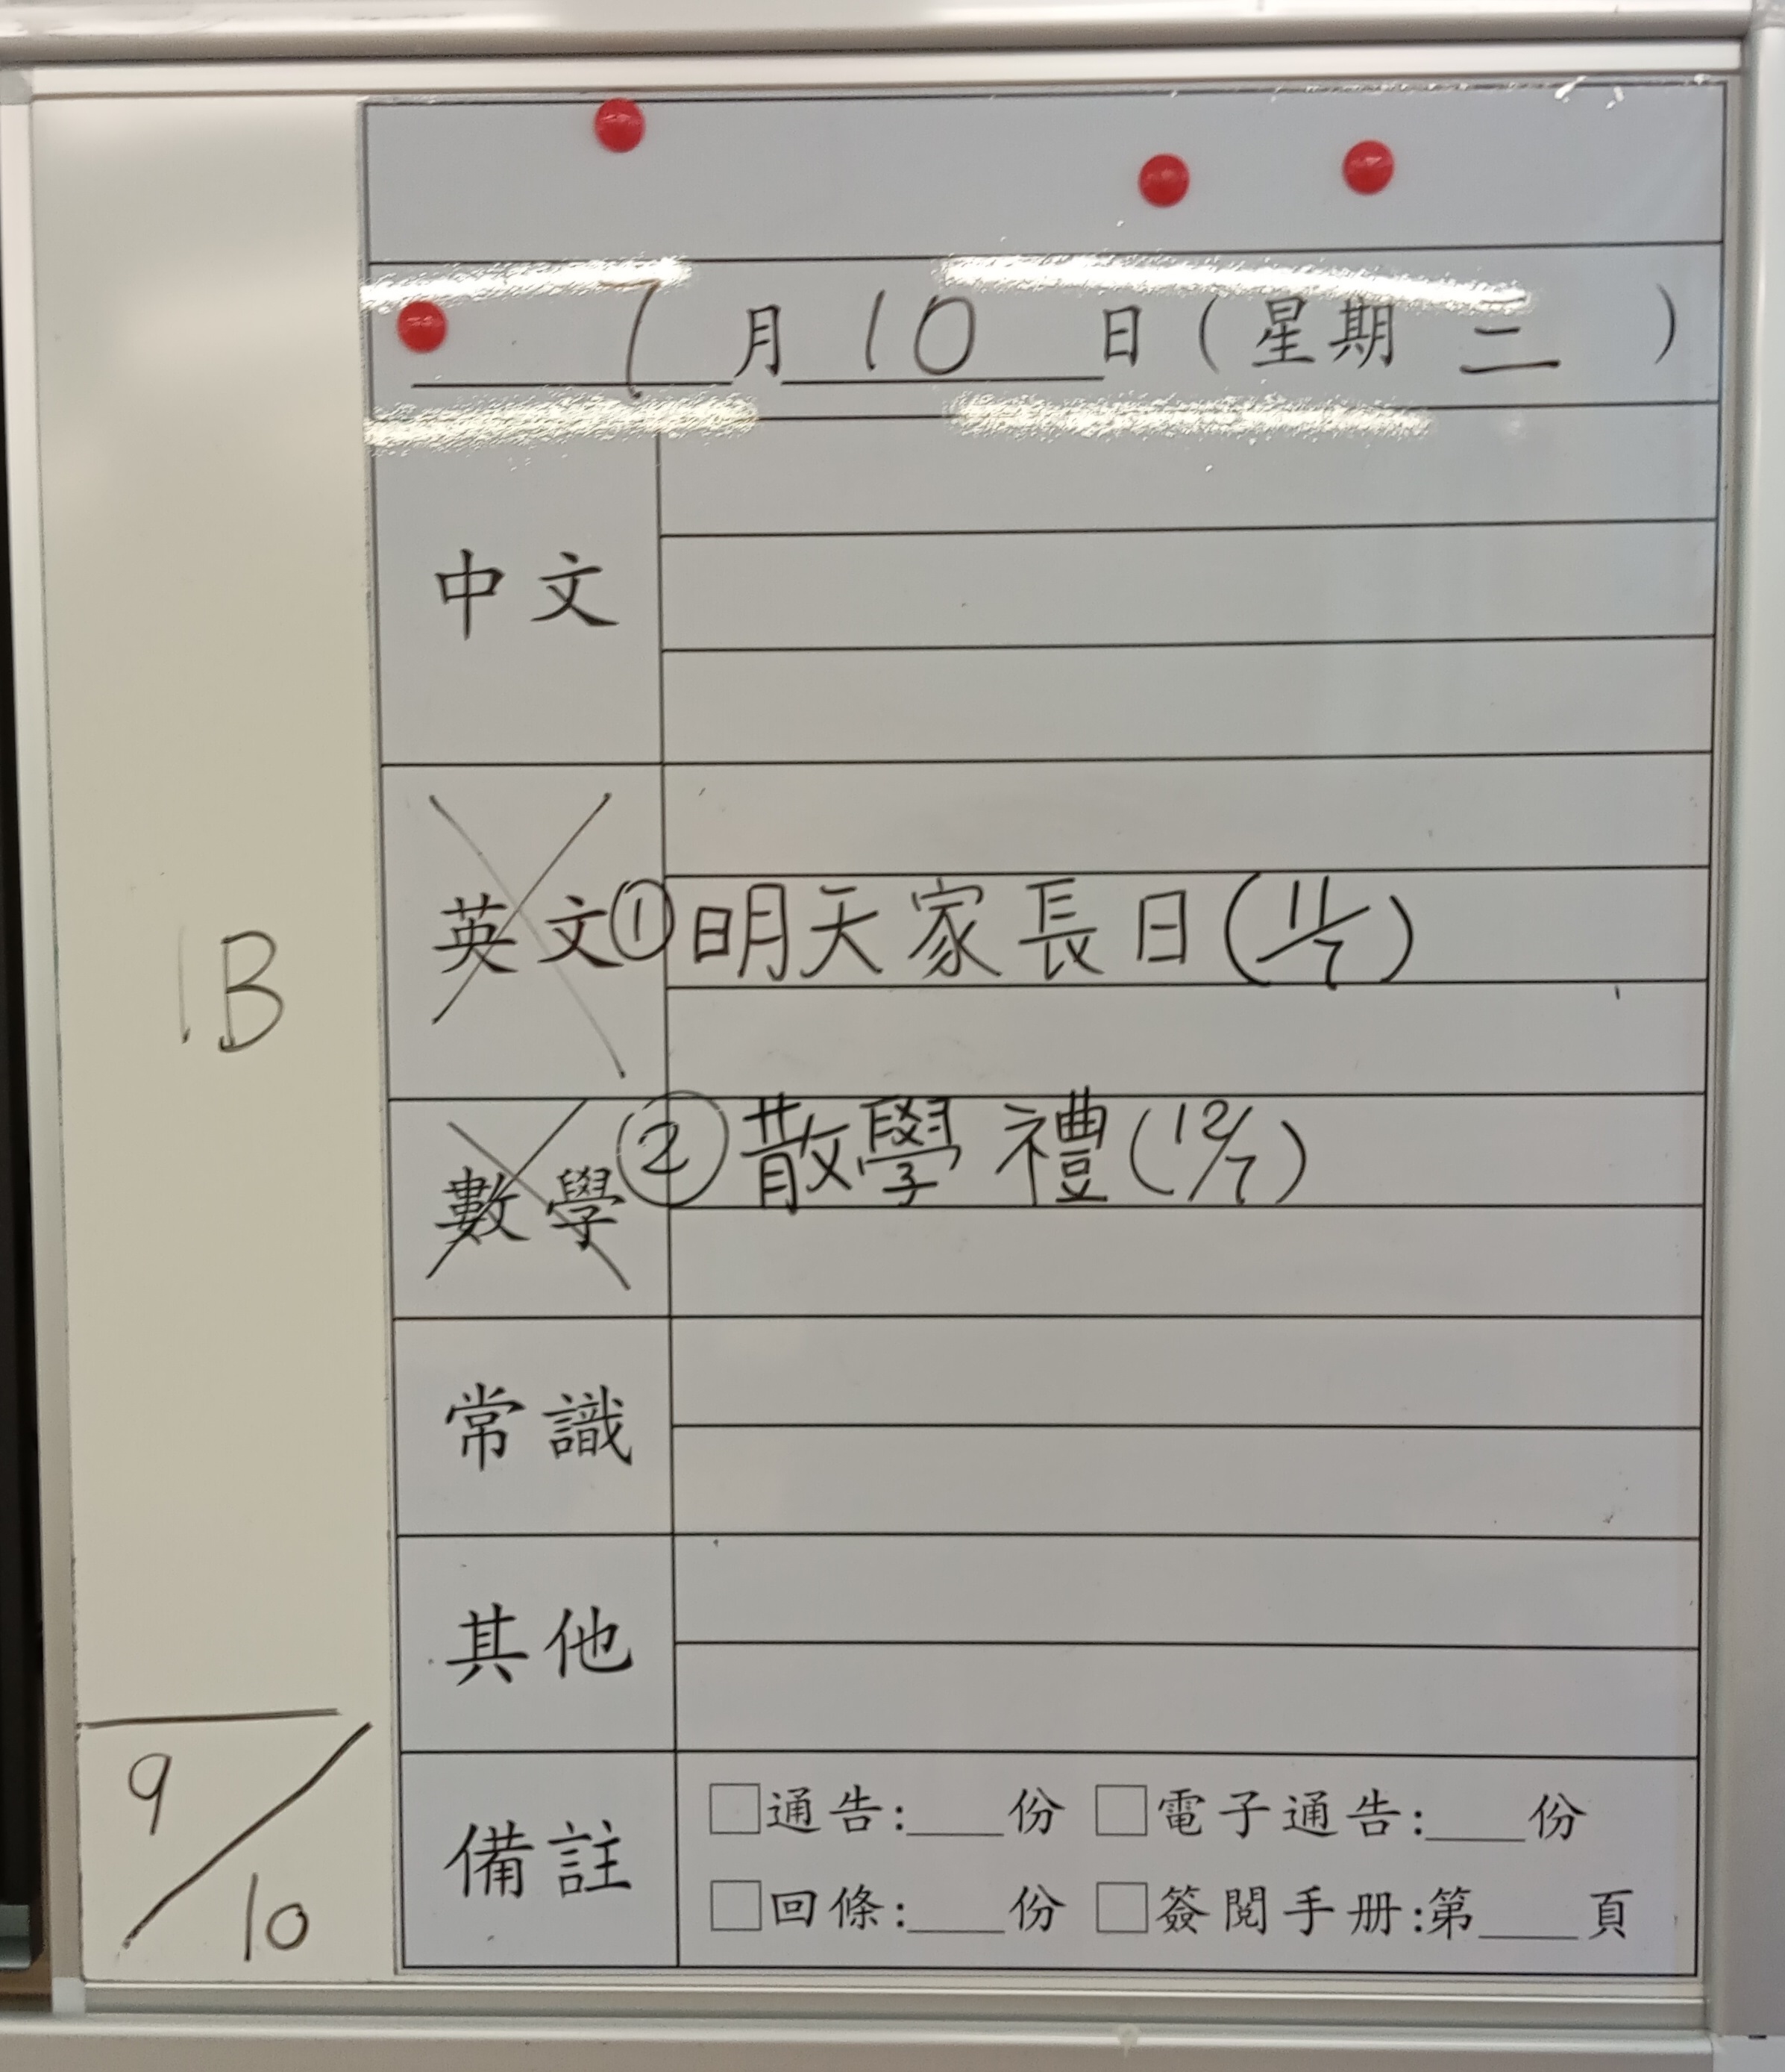 7月10日(星期三)
中文
英文 ①明天家長日(11/7)
1B
數學 ②散學禮(12/7)
常識
其他
備註
□通告:___份 □電子通告:___份
□回條:___份 □簽閱手册:第___頁
9/10